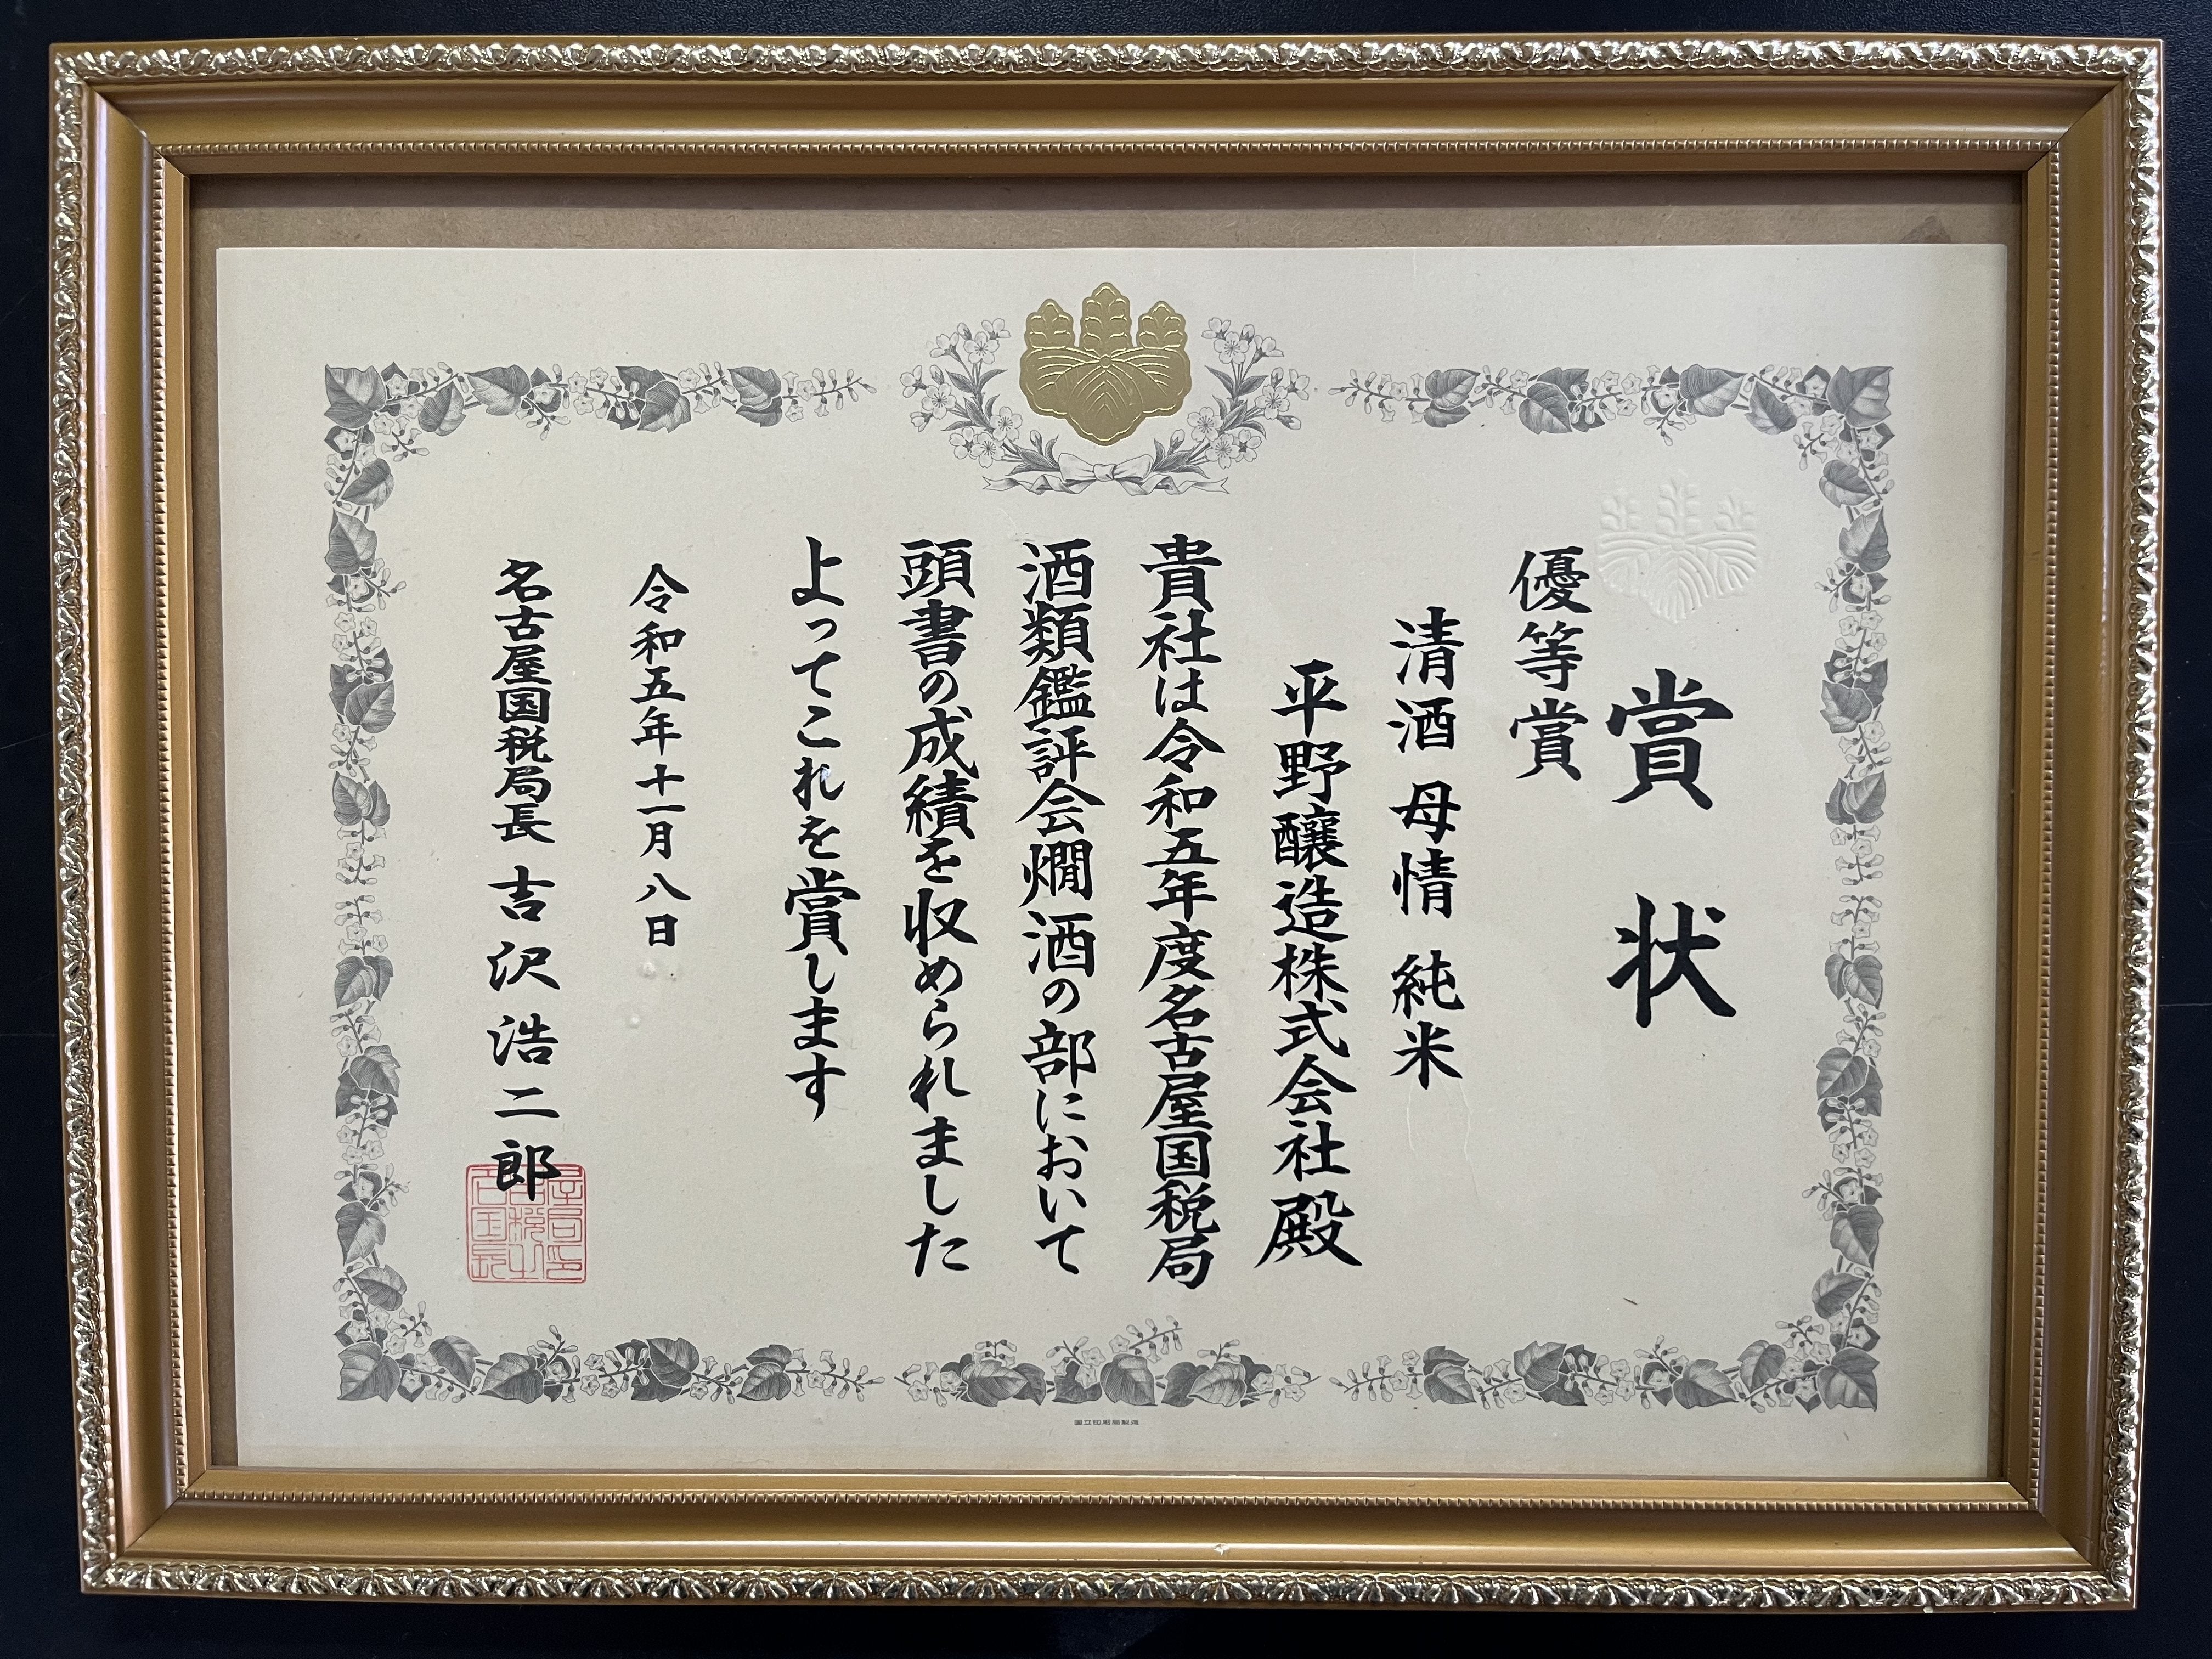 賞状
優等賞
清酒 母情 純米
平野醸造株式会社殿
貴社は令和五年度名古屋国税局
酒類鑑評会燗酒の部において
頭書の成績を収められました
よってこれを賞します
令和五年十一月八日
名古屋国税局長 吉沢浩二郎
国立印刷局製造